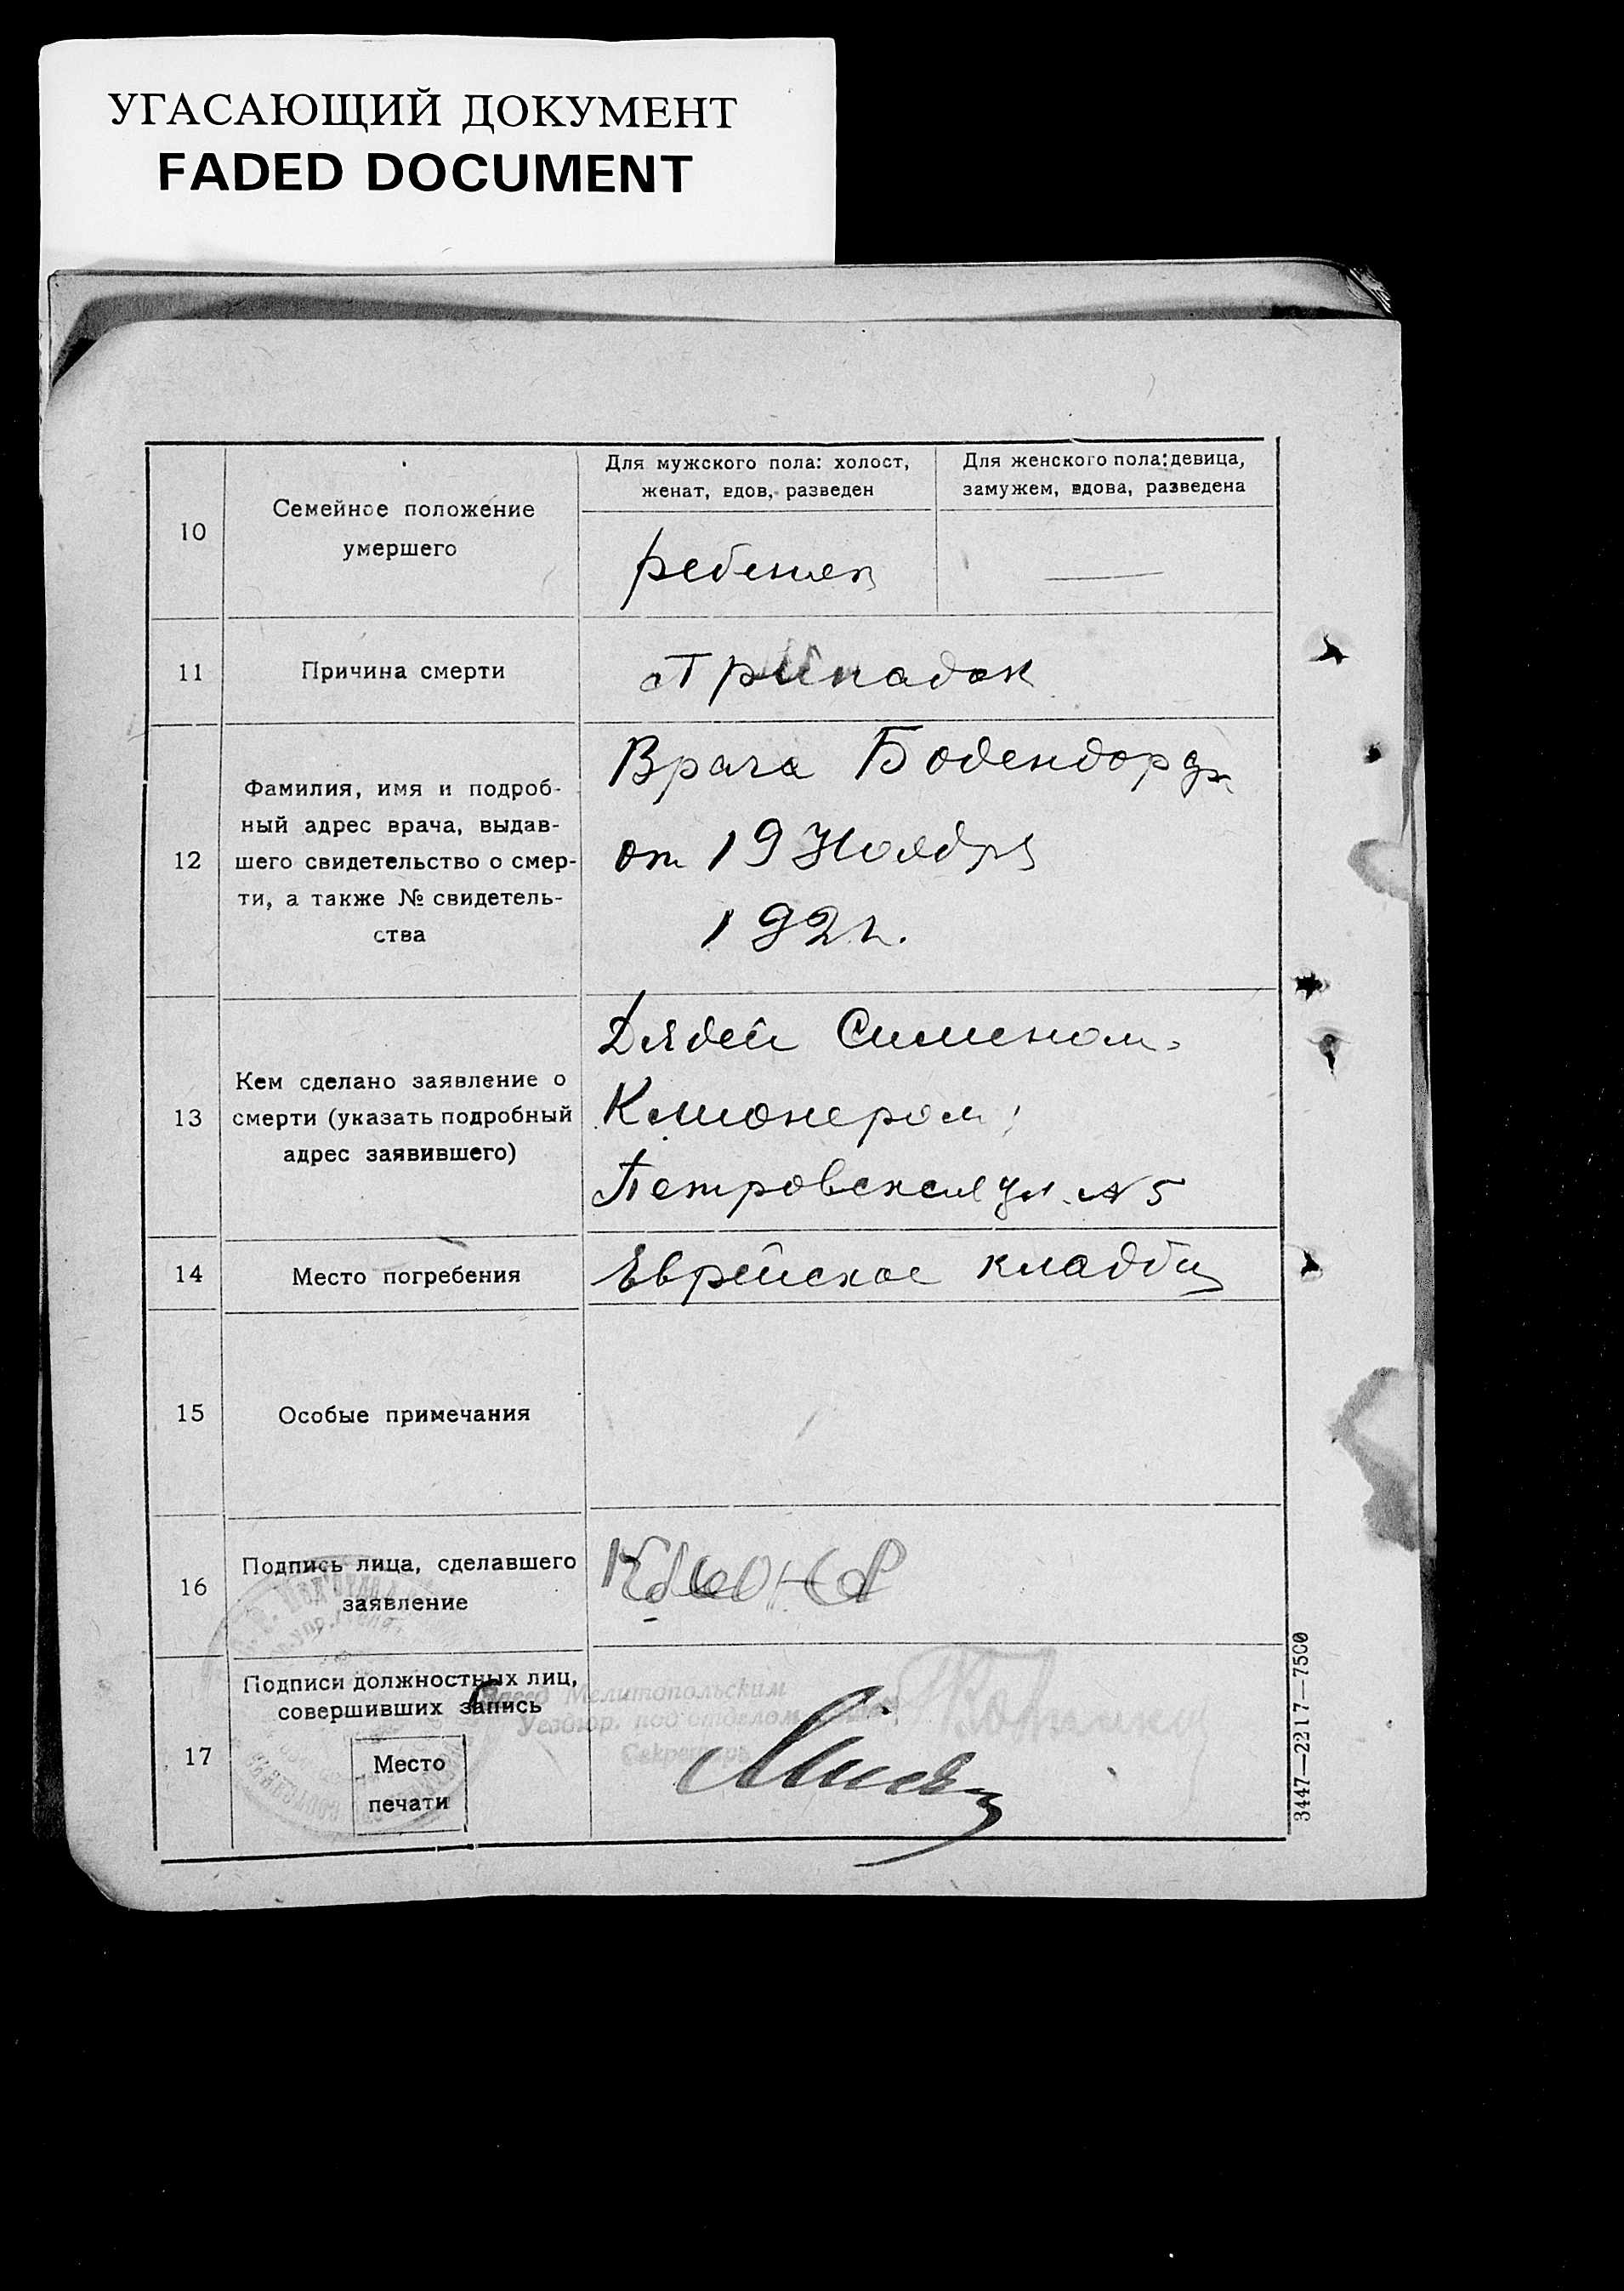 УГАСАЮЩИЙ ДОКУМЕНТ
FADED DOCUMENT
10
Семейное положение
умершего
Для мужского пола: холост,
женат, вдов, разведен
Для женского пола: девица,
замужем, вдова, разведена
ребенок
11
Причина смерти
Припадок
12
Фамилия, имя и подроб-
ный адрес врача, выдав-
шего свидетельство о смер-
ти, а также № свидетель-
ства
Врача Бодендорф
от 19 Ноября
192 г.
13
Кем сделано заявление о
смерти (указать подробный
адрес заявившего)
Дядей Сименом
Клионером
Петровская ул. № 5
14
Место погребения
Еврейское кладби
15
Особые примечания
16
Подпись лица, сделавшего
заявление
17
Подписи должностных лиц,
совершивших запись
Место
печати
Мелитопольским
под отделом
Секретарь
3447—2217—7500